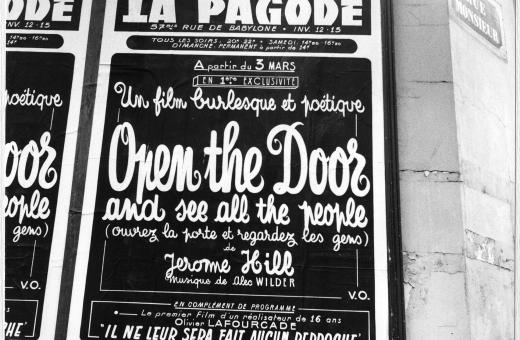 LA PAGODE
57bis RUE DE BABYLONE • INV. 12-15
TOUS LES SOIRS, 20h 22h • SAMEDI, 14h30-16h
DIMANCHE, PERMANENT à partir de 14h
A partir du 3 MARS
EN 1ère EXCLUSIVITÉ
Un film burlesque et poétique
Open the Door
and see all the people
(ouvrez la porte et regardez les gens)
de
Jerome Hill
Musique de Alec WILDER
V.O.
EN COMPLÉMENT DE PROGRAMME
• Le premier Film d'un réalisateur de 16 ans
Olivier LAFOURCADE
"IL NE LEUR SERA FAIT AUCUN REPROCHE"
INV. 12-15
14h30-16h
14h
poétique
oor
people
gens)
V.O.
HE"
MONSIEUR